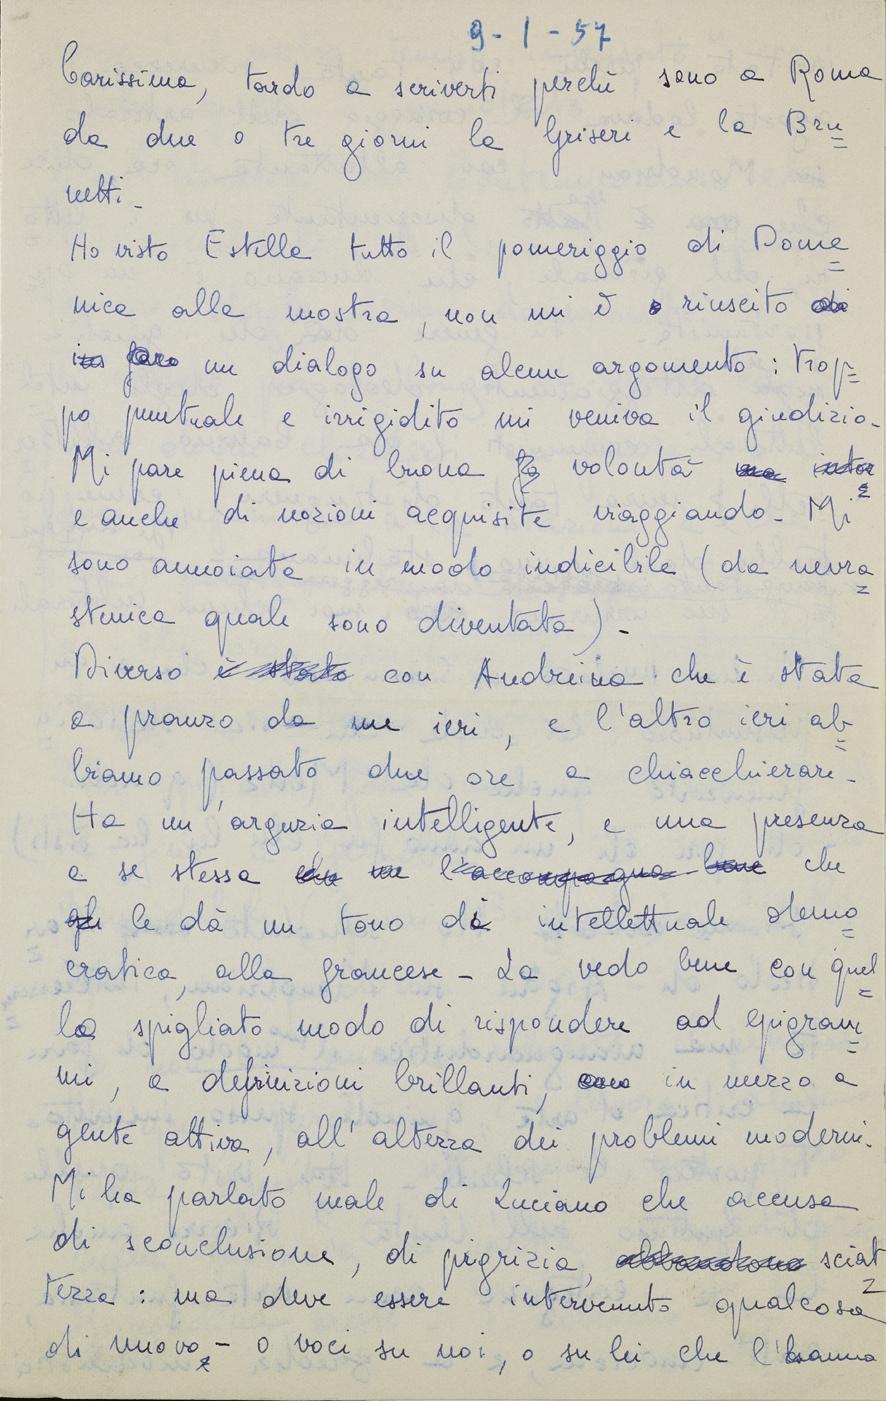 9-1-57
Carissima, tardo a scriverti perché sono a Roma
da due o tre giorni la Griseri e la Bru=
netti -
Ho visto Estella tutto il pomeriggio di Dome=
nica alla mostra, non mi è riuscito
un dialogo su alcun argomento: trop=
po puntuale e irrigidito mi veniva il giudizio -
Mi pare piena di buona volontà
e anche di nozioni acquisite viaggiando - Mi
sono annoiata in modo indicibile (da nevra=
stenica quale sono diventata) -
Diverso con Andreina che è stata
a pranzo da me ieri, e l'altro ieri ab=
biamo passato due ore a chiacchierare -
Ha un'arguzia intelligente, e una presenza
a se stessa che
le dà un tono di intellettuale demo=
cratica, alla francese - La vedo bene con quel=
lo spigliato modo di rispondere ad epigram=
mi, a definizioni brillanti, in mezzo a
gente attiva, all'altezza dei problemi moderni -
Mi ha parlato male di Luciano che accusa
di sconclusione, di pigrizia, sciat=
tezza: ma deve essere intervenuto qualcosa
di nuovo - o voci su noi, o su lei che l'hanno